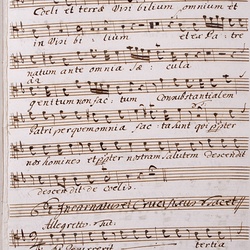 Coeli et terræ Visi bilium omnium et
in Visi bi lium et ex Pa tre
natum ante omnia sæ cula
genitum non fac tum Consubstantialem
Patri per quem omnia fac ta sunt qui ppter
nos homines et ppter nostram salutem descendit
descen dit de coelis.
Incarnatus et Crucifixus tacet
Allegretto
tertia